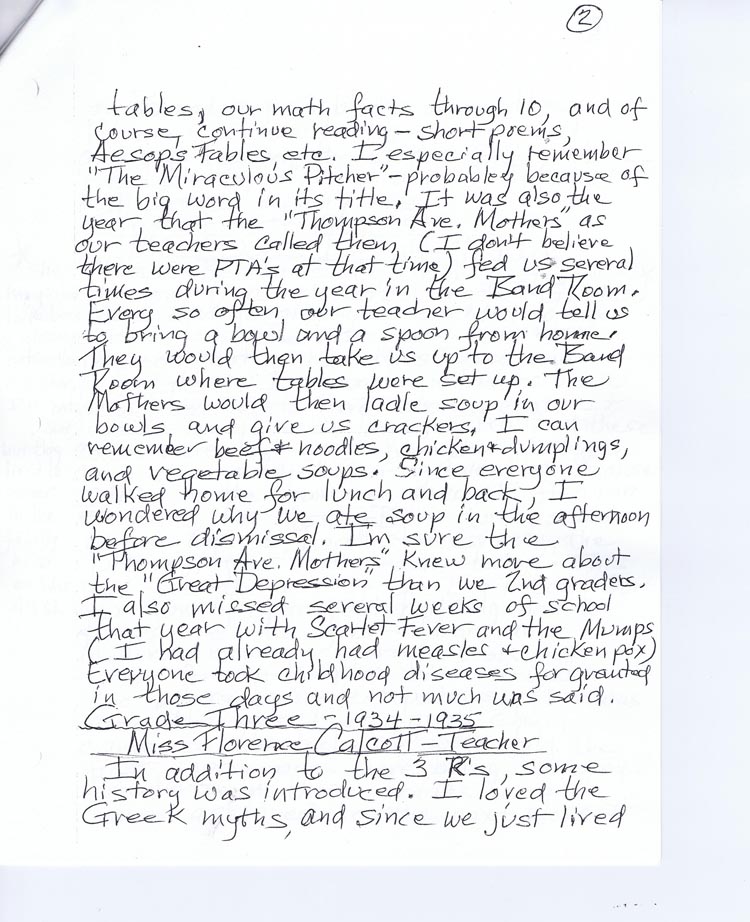 2
tables, our math facts through 10, and of
course, continue reading - short poems,
Aesop's Fables, etc. I especially remember
"The "Miraculous Pitcher" - probabley because of
the big word in its title. It was also the
year that the "Thompson Ave. Mothers" as
our teachers called them, (I don't believe
there were PTA's at that time) fed us several
times during the year in the Band Room.
Every so often our teacher would tell us
to bring a bowl and a spoon from home.
They would then take us up to the Band
Room where tables were set up. The
Mothers would then ladle soup in our
bowls and give us crackers. I can
remember beef & noodles, chicken & dumplings,
and vegetable soups. Since everyone
walked home for lunch and back, I
wondered why we ate soup in the afternoon
before dismissal. I'm sure the
"Thompson Ave. Mothers" knew more about
the "Great Depression" than we 2nd graders.
I also missed several weeks of school
that year with Scarlet Fever and the Mumps
(I had already had measles & chicken pox)
Everyone took childhood diseases for granted
in those days and not much was said.
Grade Three - 1934-1935
Miss Florence Calcott - Teacher
In addition to the 3 R's, some
history was introduced. I loved the
Greek myths, and since we just lived